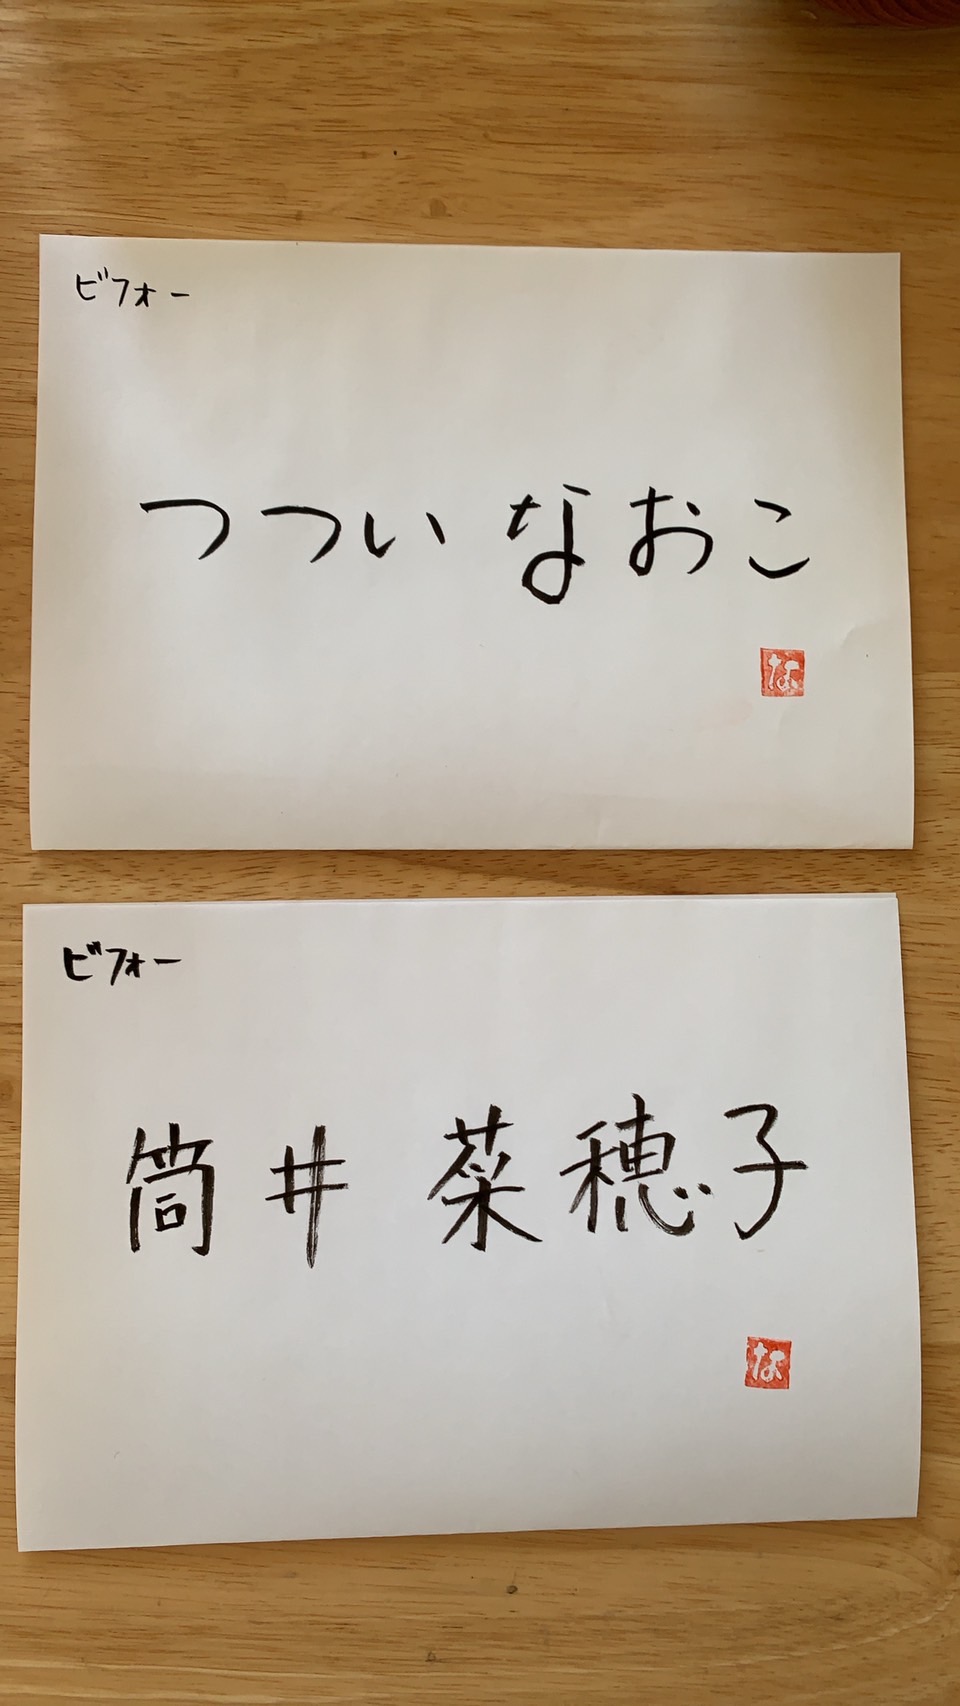 ビフォー
つつい なおこ
な
ビフォー
筒井 菜穂子
な